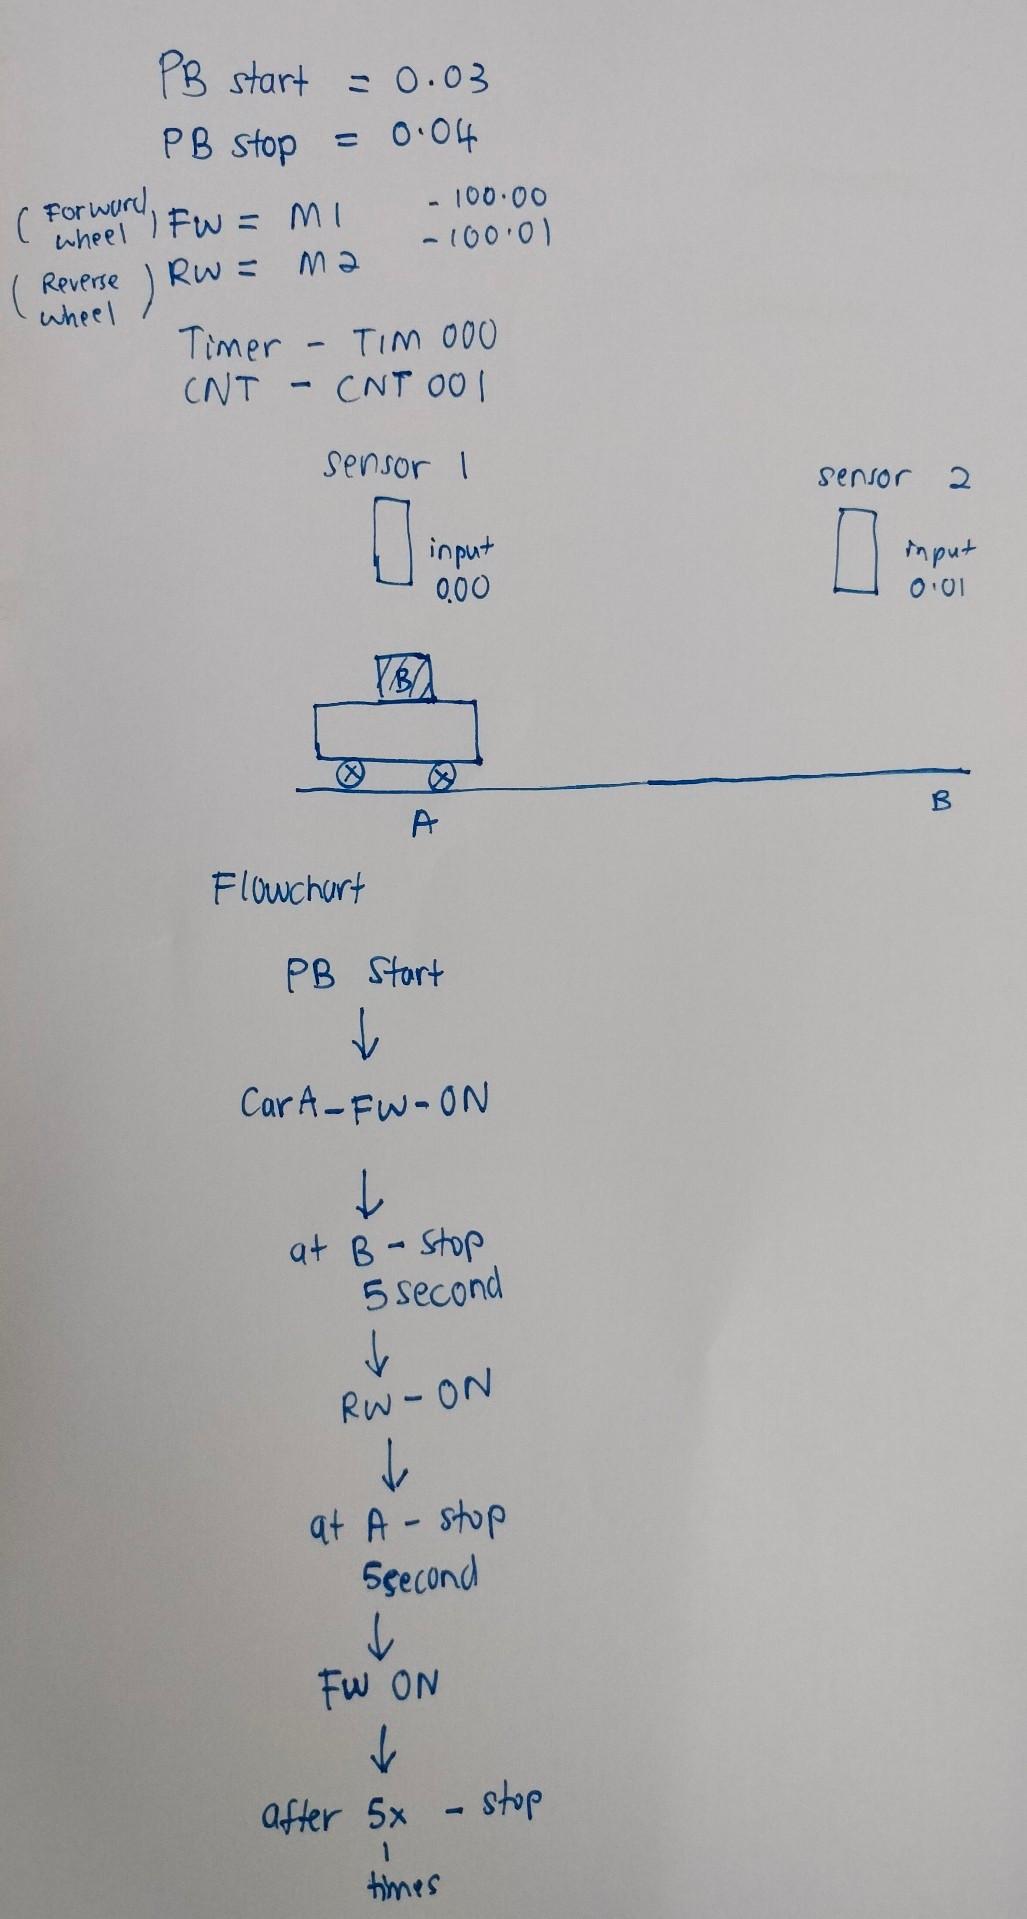 PB start = 0.03
PB stop = 0.04
(Forward wheel) FW = M1 - 100.00
(Reverse wheel) RW = M2 - 100.01
Timer - TIM 000
CNT - CNT 001
sensor 1
input
0.00
sensor 2
input
0.01
B
A
B
Flowchart
PB Start
↓
Car A - FW - ON
↓
at B - stop
5 second
↓
RW - ON
↓
at A - stop
5 second
↓
FW ON
↓
after 5x - stop
times